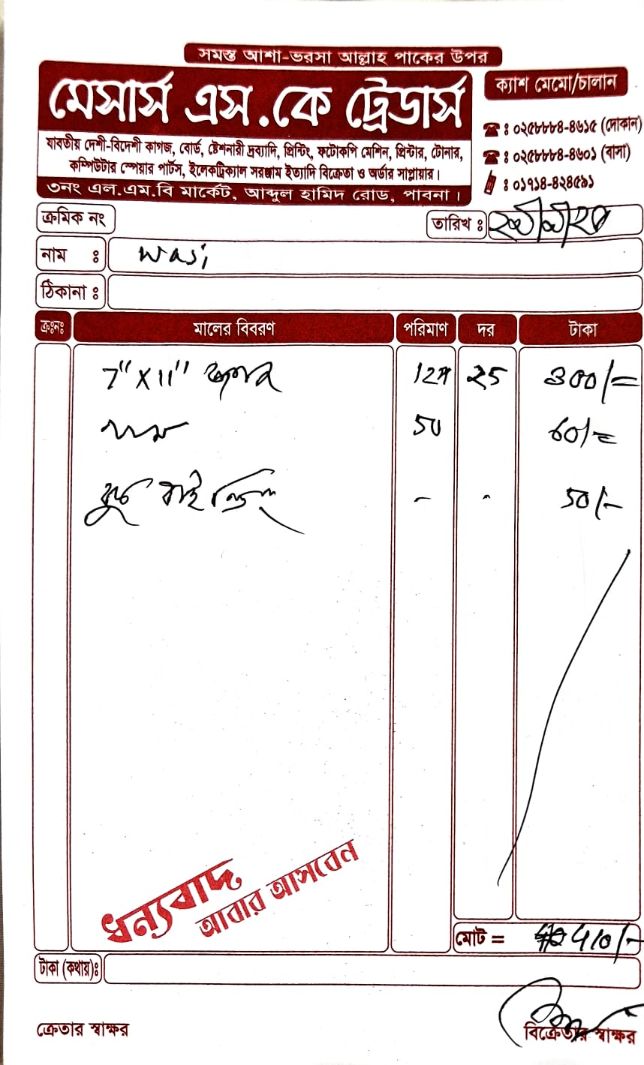 সমস্ত আশা-ভরসা আল্লাহ পাকের উপর
মেসার্স এস.কে ট্রেডার্স
যাবতীয় দেশী-বিদেশী কাগজ, বোর্ড, ষ্টেশনারী দ্রব্যাদি, প্রিন্টিং, ফটোকপি মেশিন, প্রিন্টার, টোনার,
কম্পিউটার স্পেয়ার পার্টস, ইলেকট্রিক্যাল সরঞ্জাম ইত্যাদি বিক্রেতা ও অর্ডার সাপ্লায়ার।
৩নং এল.এম.বি মার্কেট, আব্দুল হামিদ রোড, পাবনা।
ক্যাশ মেমো/চালান
: ০২৫৮৮৮৪-৪৬১৫ (দোকান)
: ০২৫৮৮৮৪-৪৬০১ (বাসা)
: ০১৭১৪-৪২৪৫৯১
ক্রমিক নং
তারিখ :
নাম : Wasi
ঠিকানা :
ক্রঃনঃ মালের বিবরণ পরিমাণ দর টাকা
7"X11" 25 300/=
50 60/=
বাইন্ডিং - - 50/-
ধন্যবাদ
আবার আসবেন
মোট = 410/-
টাকা (কথায়)ঃ
ক্রেতার স্বাক্ষর বিক্রেতার স্বাক্ষর